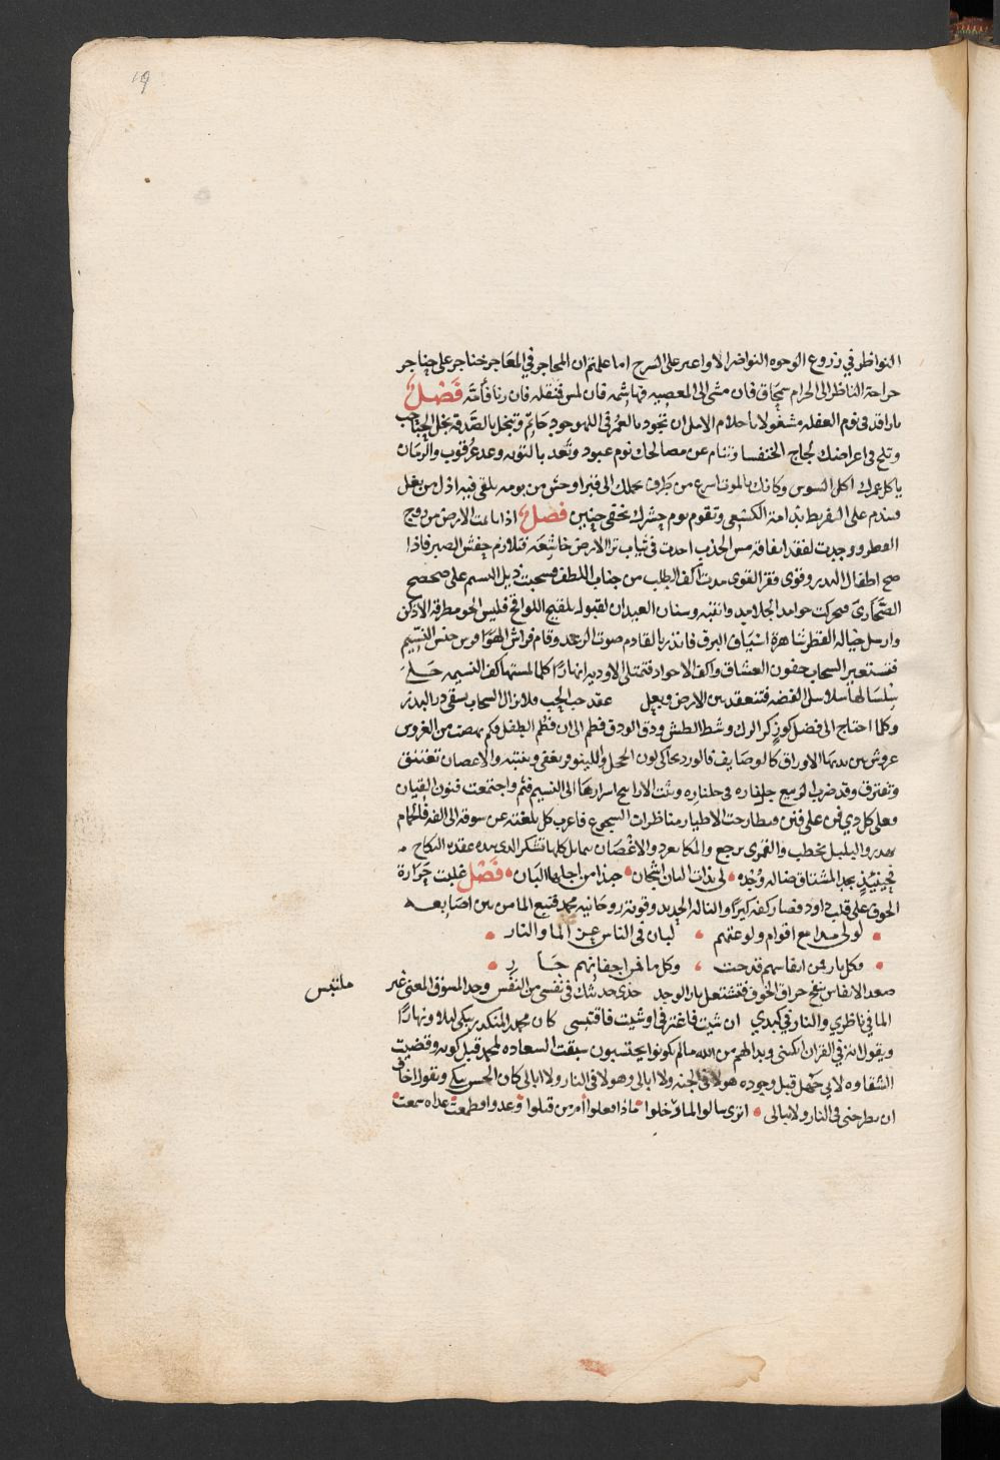 ١٩
النواظر في زروع الوجوه النواضر الا واعير على السرح اما علمتم ان المحاجر في المعاجر خناجر على حناجر
جراحة الناظر الى الحرام سمحاق فان مشى الى المعصيه فهاشمه فان لمس فنقله فان زنا فأمّه فَصْل
يا راقد في نوم الغفله مشغولا باحلام الامل ان تجود بالعمر في اللهو جود حاتم وتبخل بالصّدقه بخل الحباحب
وتلج في اعراضك لجاج الخنفسا وتنام عن مصالحك نوم عبود وتعد بالتوبه وعد عرقوب والزمان
ياكل عمرك اكل السوس وكانك بالموت اسرع من طرف حملك الى قبر اوحش من بومه تلقى فيه اذل من بغل
وتندم على التفريط ندامة الكسعى وتقوم يوم حشرك بخفى حنين فصل اذا ما تت الارض من زوج
القطر ووجدت لفقد انفاقه مس الجذب احدت في ثياب ترا الارض خاشعه فتلازم حفش الصبر فاذا
صح اطفال البدر وقوى فقر القوى مدت اكف الطلب من جناب اللطف فسحبت ذيل النسيم على صحصح
الصحارى فتحركت جوامد الجلاميد وانتبه وسنان العيدان لقبول تلقيح اللواقح فلبس الجو مطرقه الادكن
وارسل خياله القطر شاهرة اسياف البرق فانذر بالقادم صوت الرعد وقام فراش الهوا فرش حنس النسيم
فتستعير السحاب جفون العشاق واكف الاجواد فتمتلى الاوديه انهارا كلما لمستها كف النسيم حكى
سلسالها سلاسل الفضه فتنعقد بين الارض ويعل عقد حب الحب ولا تزال السحاب يسقى در البدر
وكلما احتاج الى فضل كوز كر الرك وشط الطش ودق الودق فطم الى ان فطم الطفل فكم نهضت من الغروس
عروش بين يديها الاوراق كالوصايف فالورد يحاكى لون الخجل واللينوفر يغفى وينتبه والاغصان تعتنق
وتفترق وقد ضرب الربيع جلناره في جلناره وبثت الاراييح اسرارها الى النسيم فنم واجتمعت فنون القيان
وعلى كل ذي فن على فنن وتطارحت الاطيار مناظرات السجوع فاعرب كل بلغته عن شوقه الى الفه فالحمام
يهدر والبلبل يخطب والقمرى يرجع والمكا يغرد والاغصان تتمايل كلها تشكر الذي بيده عقدة النكاح
فحينئذ يجد المشتاق ضاله وجده لي بذات البان اشجان حبذا من اجلها البان فصل غلبت حرارة
الخوف على قلب داود فصار كفه كيرا والنا له الحديد وقويت روحانيه محمد فنبع الما من بين اصابعه
لولى مدامع اقوام ولوعتهم لبان في الناس عن الما والنار
فكل نار فمن انفاسهم قدحت وكل ما فمن اجفانهم جا رِ
صعد الانفاس تنفخ حراق الخوف فتشتعل نار الوجد خذى حدثتك في نفسي من النفس وجد المسوق المعنى غير ملتبس
الما في ناظري والنار في كبدي ان شيت فاغترفي او شيت فاقتبسي كان محمد المنكدر يبكى ليلا ونهارا
ويقول انه في القران ابكتنى وبدا لهم من الله مالم يكونوا يحتسبون سبقت السعاده لمحمد قبل كونه وقضيت
الشقاوه لابى جهل قبل وجوده هولا في الجنه ولا ابالى وهولا في النار ولا ابالى كان الحسن يبكى ويقول اخاف
ان يطرحنى في النار ولا يبالى اترى سالوا لما رحلوا ماذا فعلوا ام من قتلوا وعدوا وطمعت عداه سمعت